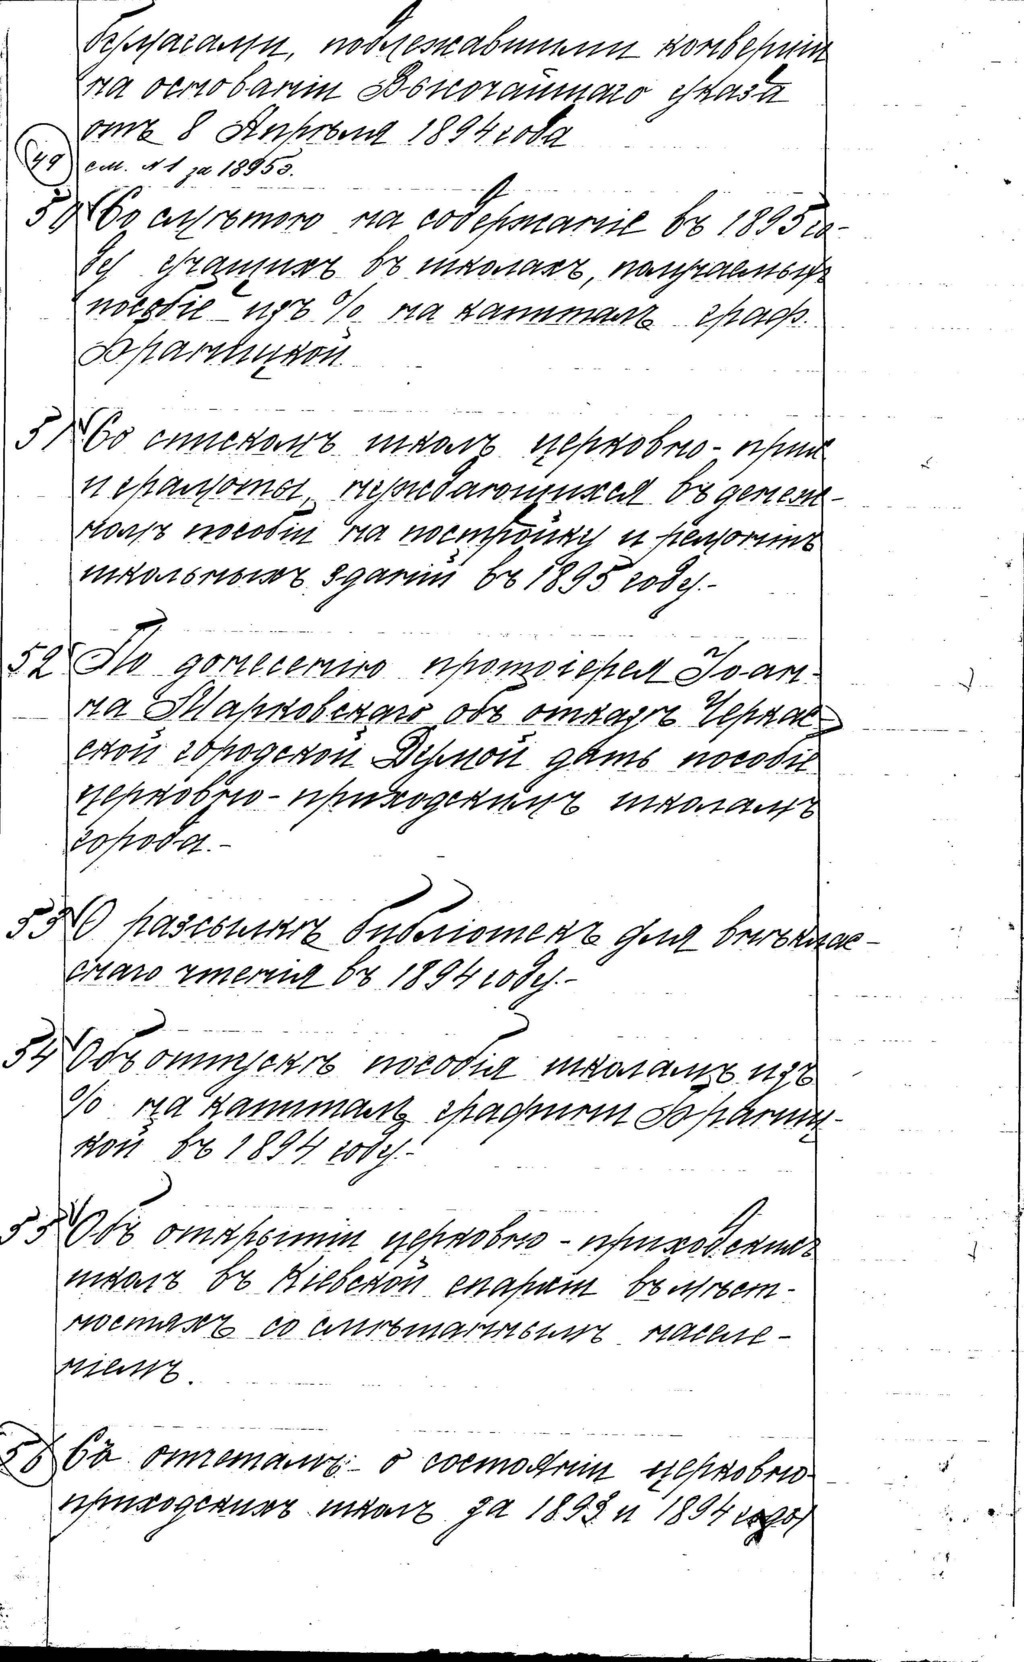 бумагами, подлежавшими конверсіи
на основаніи Высочайшаго указа
отъ 8 Апрѣля 1894 года
49 см. № 1 за 1895 г.
50 Со смѣтою на содержаніе въ 1895 го-
ду учащихъ въ школахъ, получаемыхъ
пособіе изъ % на капиталъ граф.
Браницкой
51 Со спискомъ школъ церковно-прих
и грамоты, нуждающихся въ денеж-
номъ пособіи на постройку и ремонтъ
школьныхъ зданій въ 1895 году.-
52 По донесенію протоіерея Іоан-
на Марковскаго объ отказѣ Черкас-
ской городской Думой дать пособіе
церковно-приходскимъ школамъ
города.-
53 О разсылкѣ библіотекъ для внѣклас-
снаго чтенія въ 1894 году.-
54 Объ отпускѣ пособія школамъ изъ
% на капиталъ графини Браниц-
кой въ 1894 году.-
55 Объ открытіи церковно-приходскихъ
школъ въ Кіевской епархіи въ мѣст-
ностяхъ со смѣшаннымъ населе-
ніемъ.
56 Съ отчетамъ о состояніи церковно
приходскихъ школъ за 1893 и 1894 годы